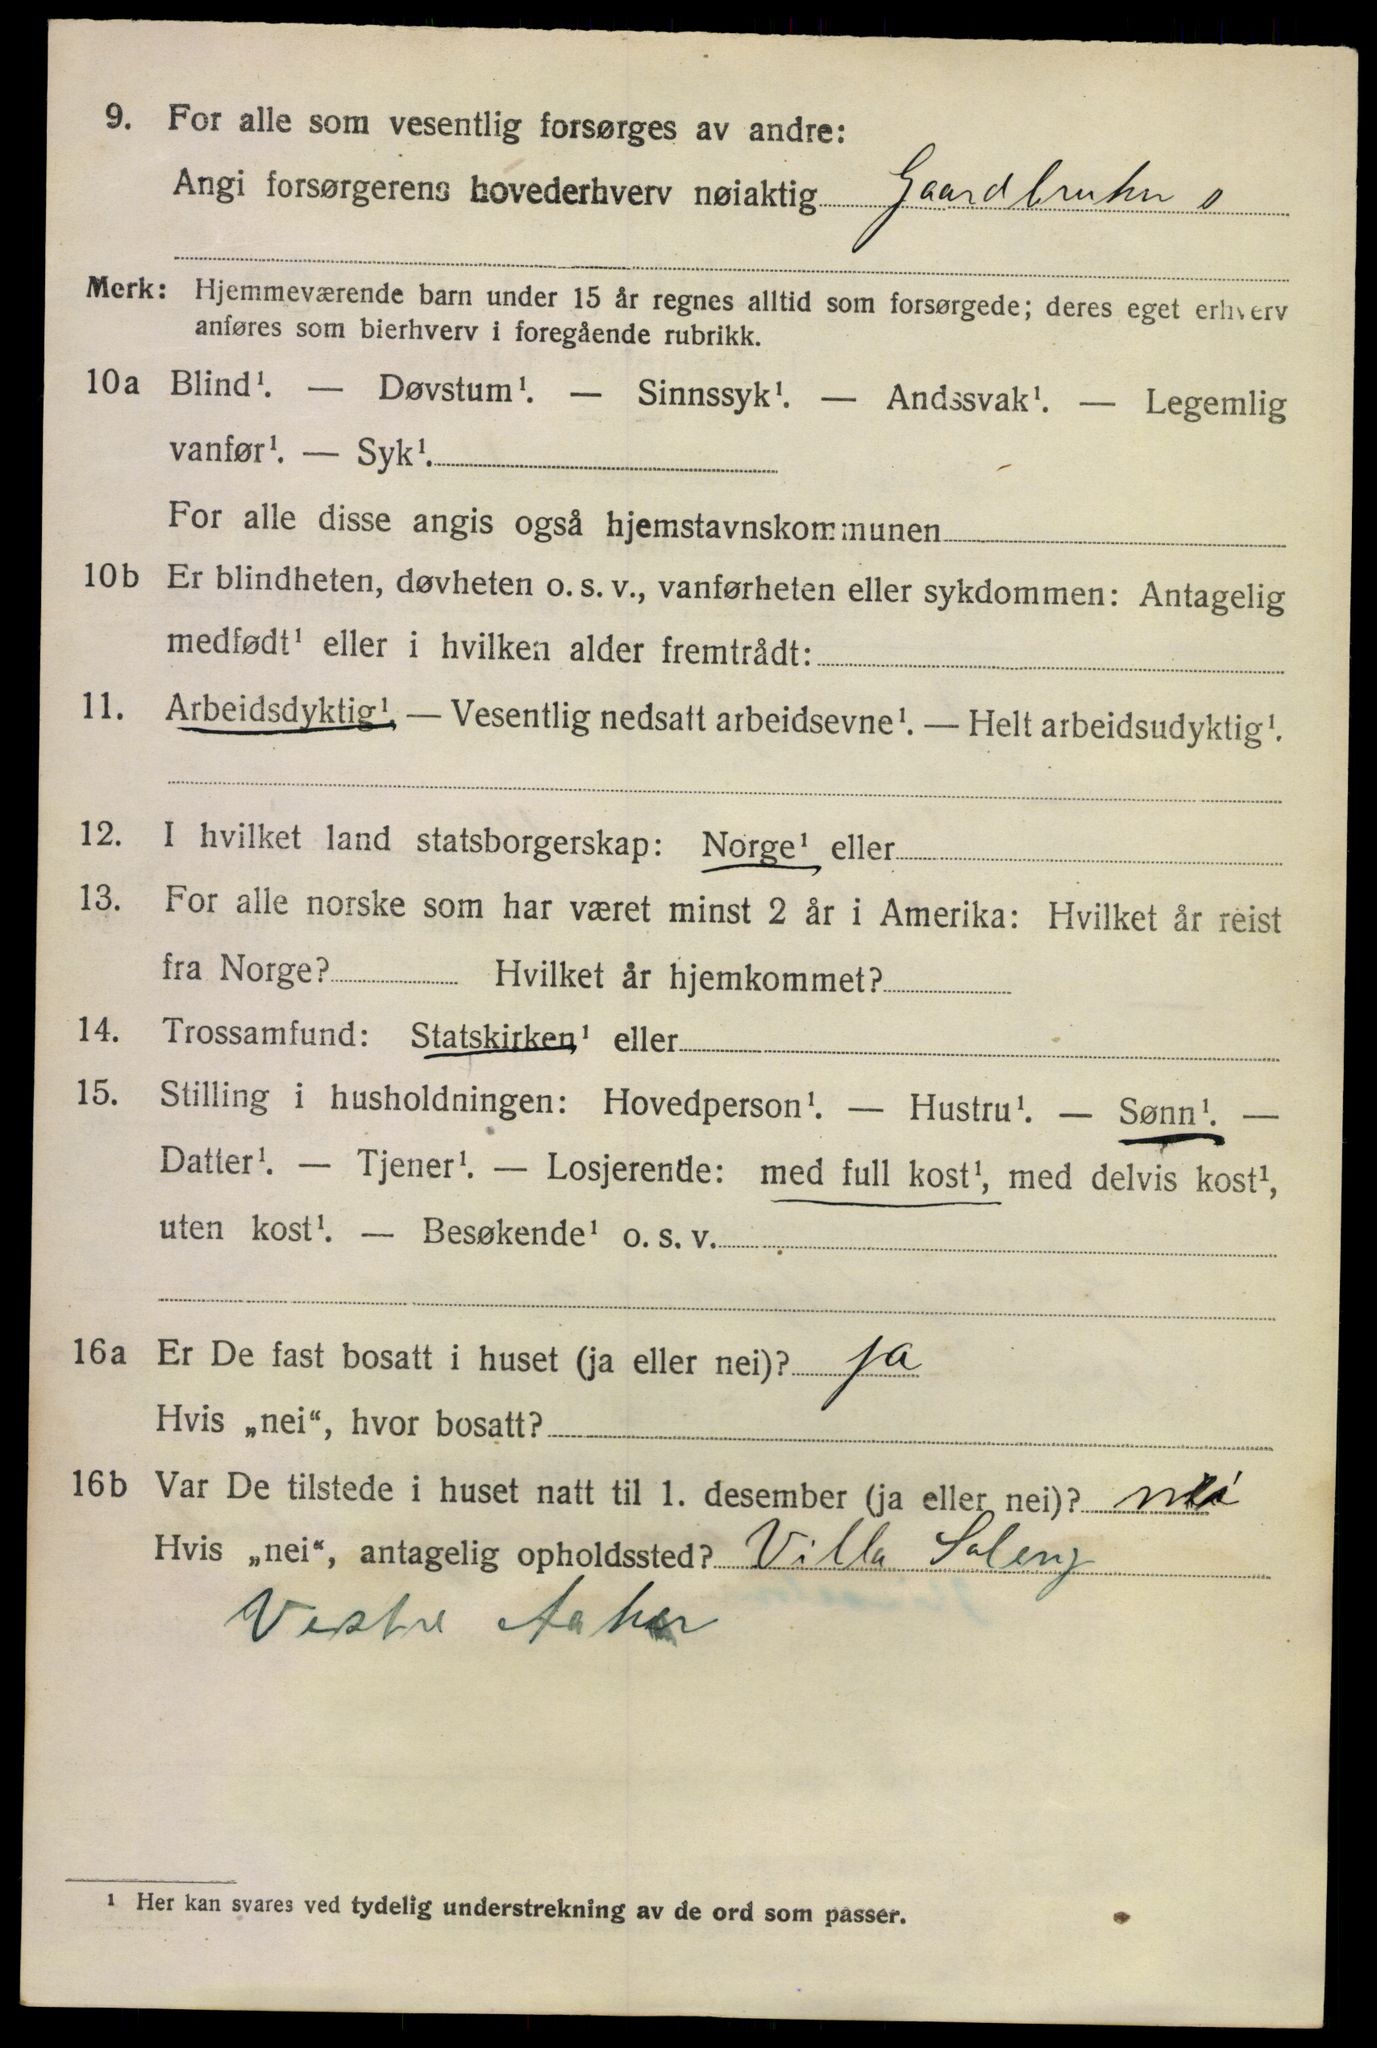 9. For alle som vesentlig forsørges av andre:
Angi forsørgerens hovederhverv nøiaktig Gaardbruker s
Merk: Hjemmeværende barn under 15 år regnes alltid som forsørgede; deres eget erhverv
anføres som bierhverv i foregående rubrikk.
10a Blind¹. — Døvstum¹. — Sinnssyk¹. — Åndssvak¹. — Legemlig
vanfør¹. — Syk¹.
For alle disse angis også hjemstavnskommunen
10b Er blindheten, døvheten o. s. v., vanførheten eller sykdommen: Antagelig
medfødt¹ eller i hvilken alder fremtrådt:
11. Arbeidsdyktig¹. — Vesentlig nedsatt arbeidsevne¹. — Helt arbeidsudyktig¹.
12. I hvilket land statsborgerskap: Norge¹ eller
13. For alle norske som har været minst 2 år i Amerika: Hvilket år reist
fra Norge? Hvilket år hjemkommet?
14. Trossamfund: Statskirken¹ eller
15. Stilling i husholdningen: Hovedperson¹. — Hustru¹. — Sønn¹. —
Datter¹. — Tjener¹. — Losjerende: med full kost¹, med delvis kost¹,
uten kost¹. — Besøkende¹ o. s. v.
16a Er De fast bosatt i huset (ja eller nei)? ja
Hvis „nei“, hvor bosatt?
16b Var De tilstede i huset natt til 1. desember (ja eller nei)? nei
Hvis „nei“, antagelig opholdssted? Villa Soleng
Vestre Aaker
¹ Her kan svares ved tydelig understrekning av de ord som passer.